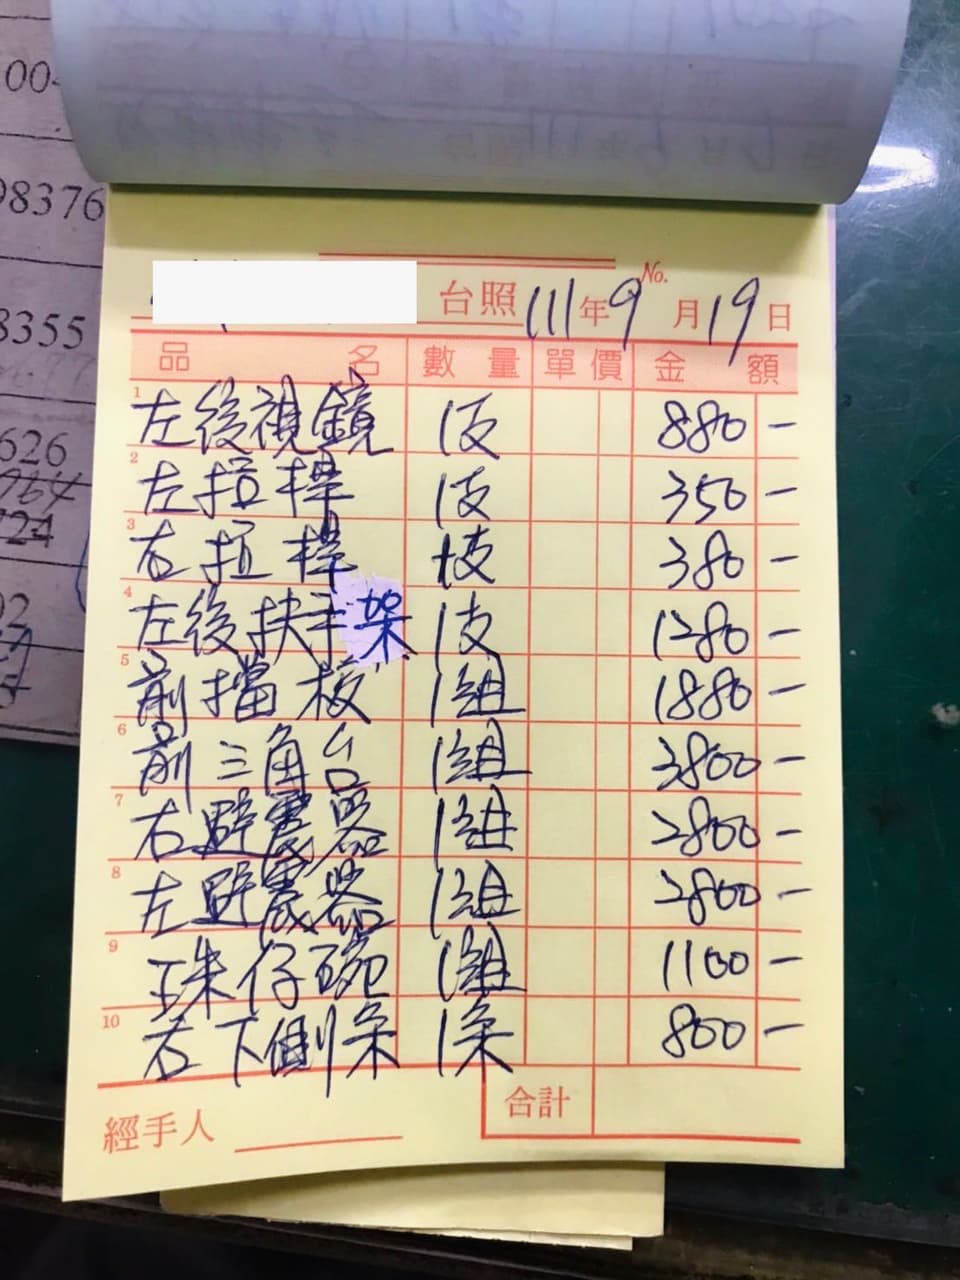 004
98376
3355
626
964
724
02
No.
台照 111年9月19日
品名 數量 單價 金額
1 左後視鏡 1支 880-
2 左拉桿 1支 350-
3 右拉桿 1支 380-
4 左後扶手架 1支 1280-
5 前擋板 1組 1880-
6 前三角台 1組 3800-
7 右避震器 1組 2800-
8 左避震器 1組 2800-
9 珠仔碗 1組 1100-
10 右下側条 1条 800-
合計
經手人